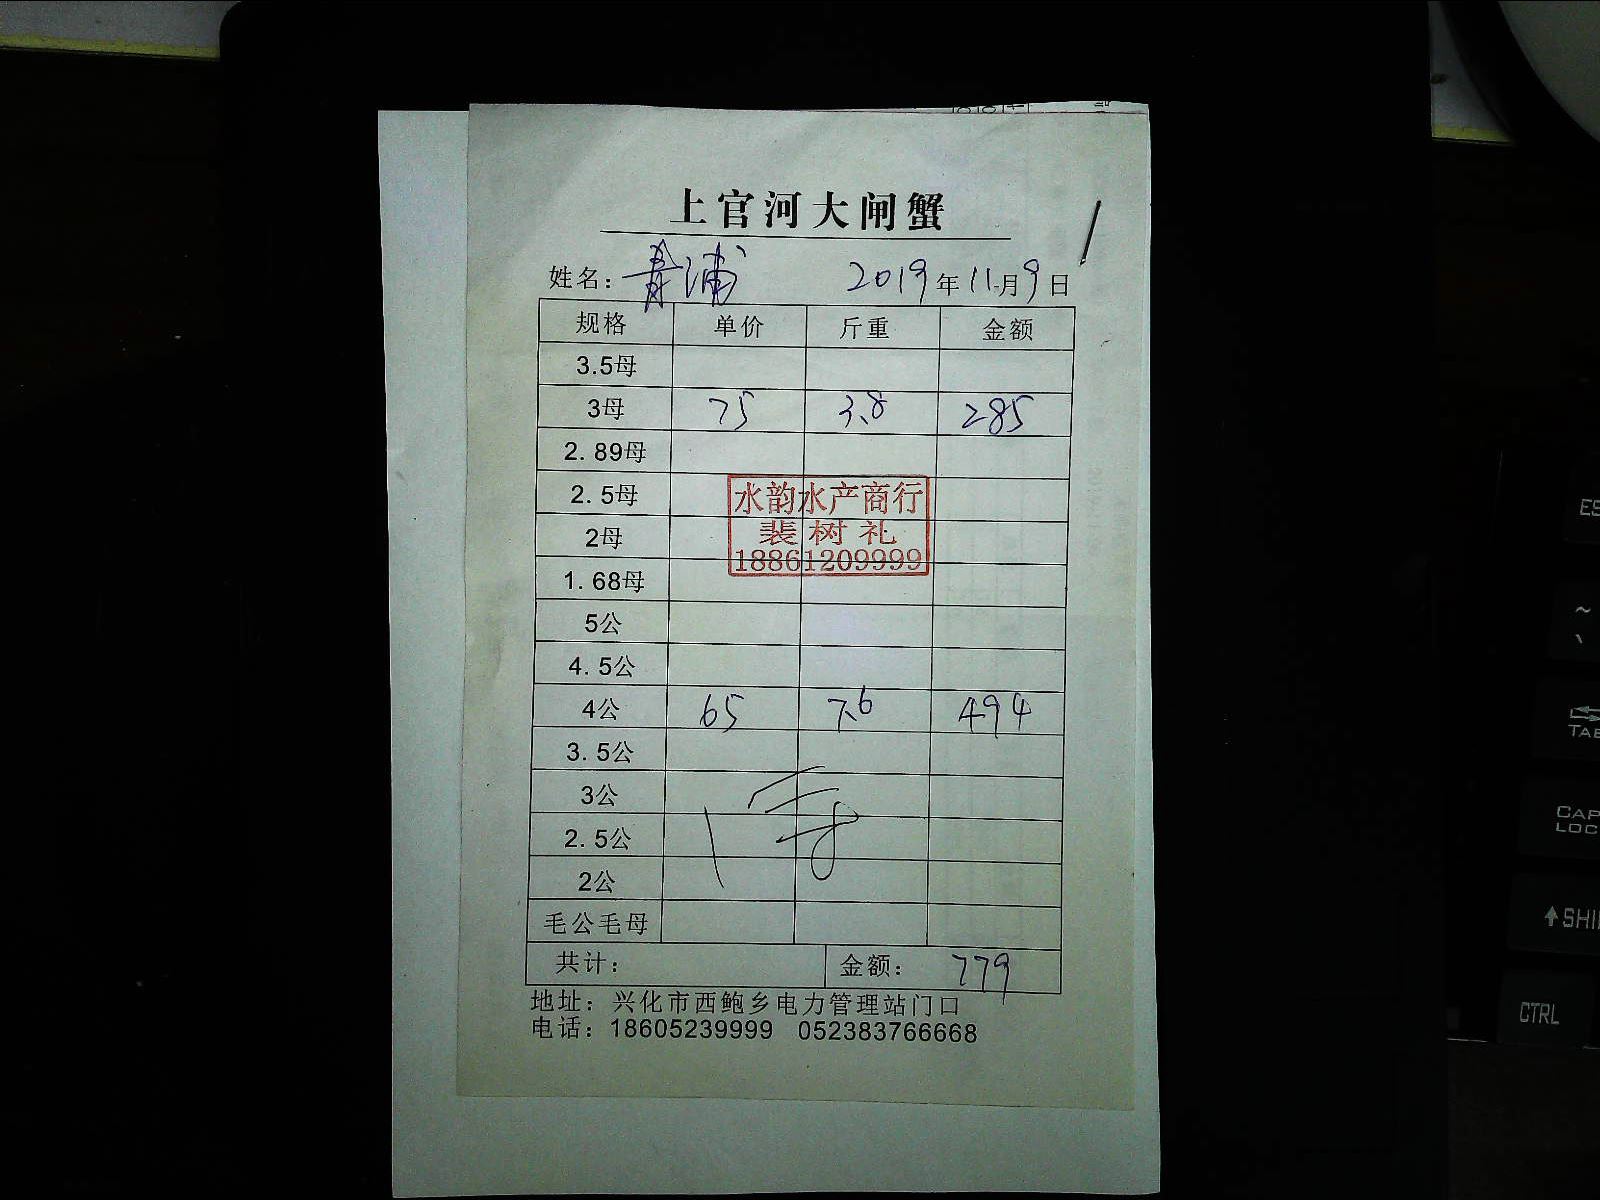 上官河大闸蟹
姓名：青浦 2019年11月9日
规格 单价 斤重 金额
3.5母
3母 75 3.8 285
2.89母
2.5母
2母
1.68母
水韵水产商行
裴树礼
18861209999
5公
4.5公
4公 65 7.6 494
3.5公
3公
2.5公
2公
毛公毛母
共计： 金额： 779
地址：兴化市西鲍乡电力管理站门口
电话：18605239999 052383766668
ES
~
TAB
CAP
LOC
SHI
CTRL